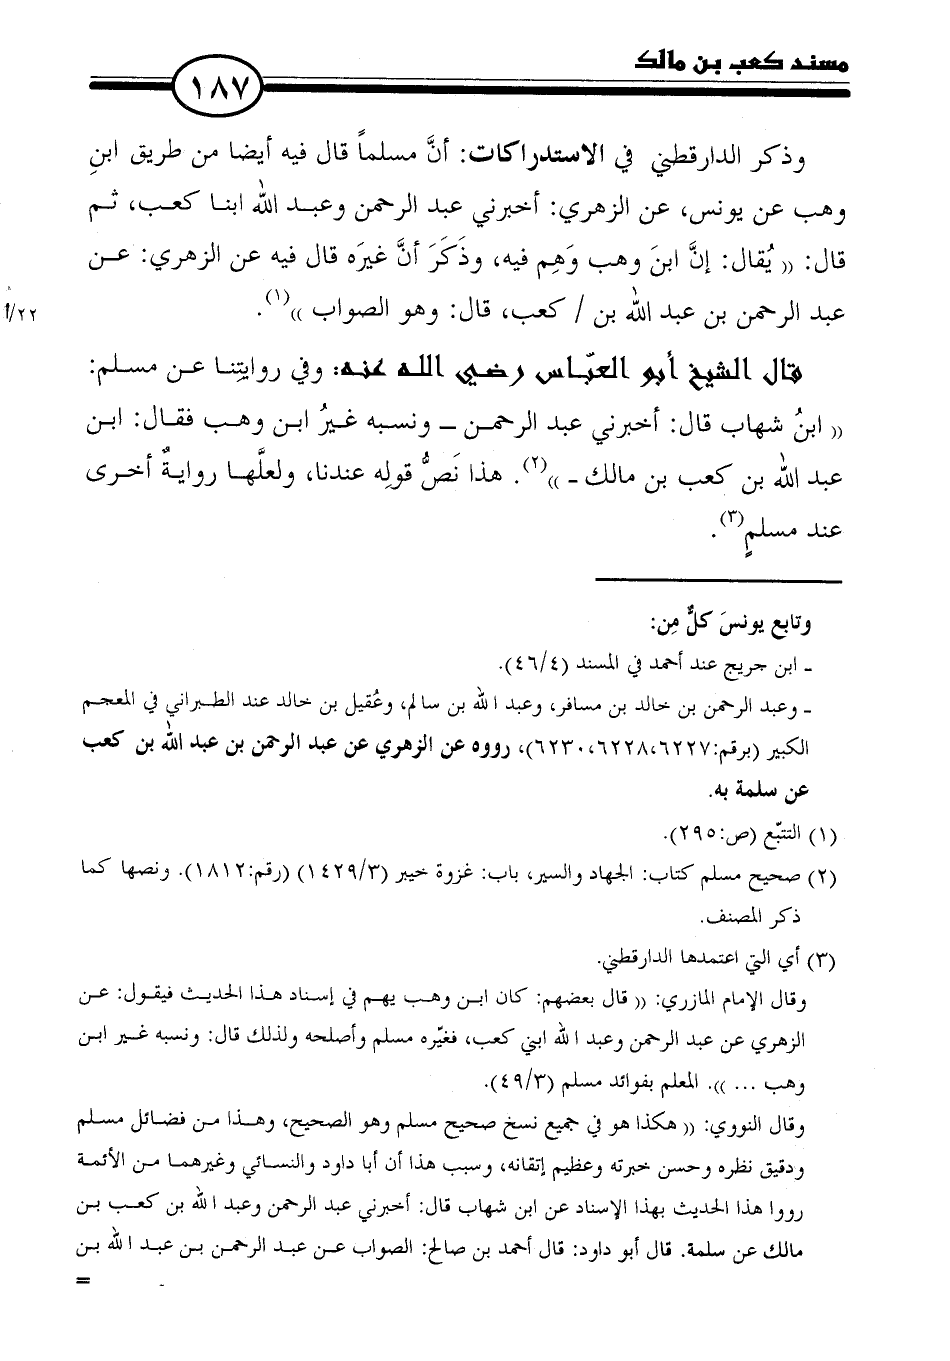 مسند كعب بن مالك
١٨٧
وذكر الدارقطني في الاستدراكات: أنَّ مسلماً قال فيه أيضا من طريق ابنِ
وهب عن يونس، عن الزهري: أخبرني عبد الرحمن وعبد الله ابنا كعب، ثم
قال: (( يُقال: إنَّ ابنَ وهب وَهِم فيه، وذَكَرَ أنَّ غيرَه قال فيه عن الزهري: عن
عبد الرحمن بن عبد الله بن / كعب، قال: وهو الصواب ))(١).
٢٢/أ
قال الشيخ أبو العبّاس رضي الله عنه: وفي روايتِنا عن مسلم:
(( ابنُ شهاب قال: أخبرني عبد الرحمن ـ ونسبه غيرُ ابن وهب فقال: ابن
عبد الله بن كعب بن مالك ـ ))(٢). هذا نَصُّ قولِه عندنا، ولعلَّها روايةٌ أخرى
عند مسلمٍ(٣).
وتابع يونسَ كلٌّ مِن:
ـ ابن جريج عند أحمد في المسند (٤٦/٤).
ـ وعبد الرحمن بن خالد بن مسافر، وعبد الله بن سالم، وعُقيل بن خالد عند الطبراني في المعجم
الكبير (برقم:٦٢٢٧،٦٢٢٨،٦٢٣٠)، رووه عن الزهري عن عبد الرحمن بن عبد الله بن كعب
عن سلمة به.
(١) التتبّع (ص:٢٩٥).
(٢) صحيح مسلم كتاب: الجهاد والسير، باب: غزوة خيبر (١٤٢٩/٣) (رقم:١٨١٢). ونصها كما
ذكر المصنف.
(٣) أي التي اعتمدها الدارقطني.
وقال الإمام المازري: (( قال بعضهم: كان ابن وهب يهم في إسناد هذا الحديث فيقول: عن
الزهري عن عبد الرحمن وعبد الله ابني كعب، فغيّره مسلم وأصلحه ولذلك قال: ونسبه غير ابن
وهب ... )). المعلم بفوائد مسلم (٤٩/٣).
وقال النووي: (( هكذا هو في جميع نسخ صحيح مسلم وهو الصحيح، وهذا من فضائل مسلم
ودقيق نظره وحسن خبرته وعظيم إتقانه، وسبب هذا أن أبا داود والنسائي وغيرهما من الأئمة
رووا هذا الحديث بهذا الإسناد عن ابن شهاب قال: أخبرني عبد الرحمن وعبد الله بن كعب بن
مالك عن سلمة. قال أبو داود: قال أحمد بن صالح: الصواب عن عبد الرحمن بن عبد الله بن
=